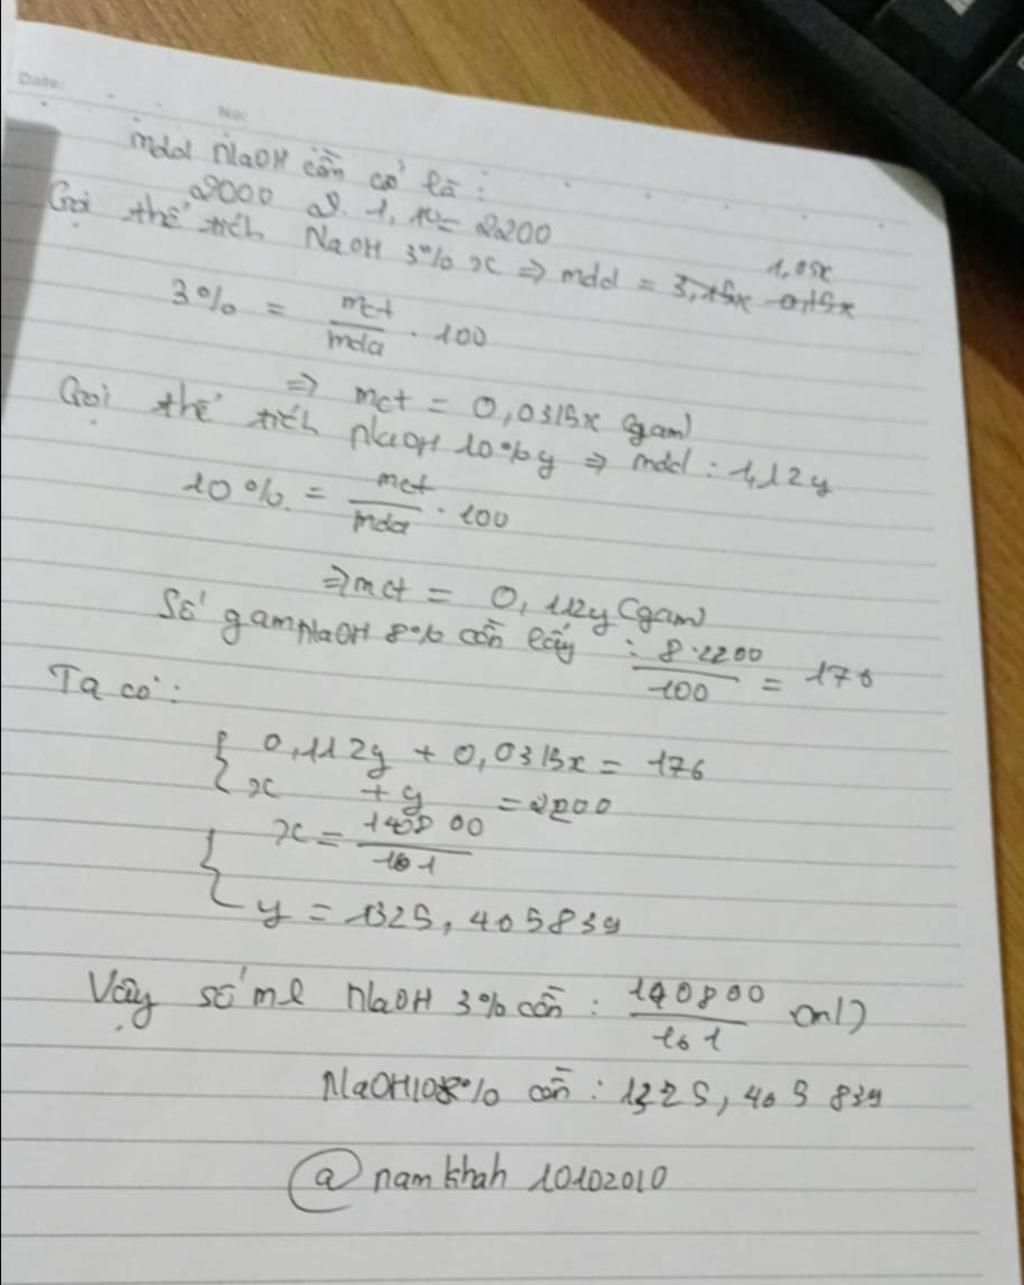 Date:
No:
mdd NaOH cần có là:
2000 2. 1,10= 2200
Gọi thể tích NaOH 3% x ⇒ mdd = 3,15x 0,15x 1,05x
3% = mct/mdd . 100
⇒ mct = 0,0315x (gam)
Gọi thể tích NaOH 10% y ⇒ mdd : 1,12y
10% = mct/mdd . 100
⇒ mct = 0,112y (gam)
Số gam NaOH 8% cần lấy : 8.2200/100 = 176
Ta có:
{ 0,112y + 0,0315x = 176
x + y = 2200
{ x = 140800/161
y = 1325,465839
Vậy số ml NaOH 3% cần : 140800/161 (ml)
NaOH 10% cần : 1325,465839
@namkhah10102010